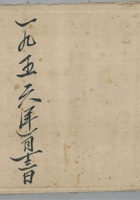 一九五六年一月十三日